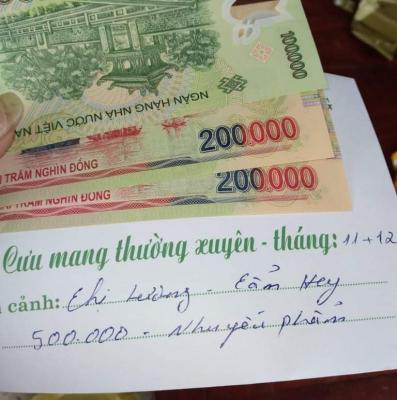 100000
NGÂN HÀNG NHÀ NƯỚC VIỆT NA
200.000
I TRĂM NGHÌN ĐỒNG
200.000
TRĂM NGHÌN ĐỒNG
Cưu mang thường xuyên - tháng: 11+12
cảnh: Chị Lương - Cẩm Hey
500.000 - Nhu yếu phẩm